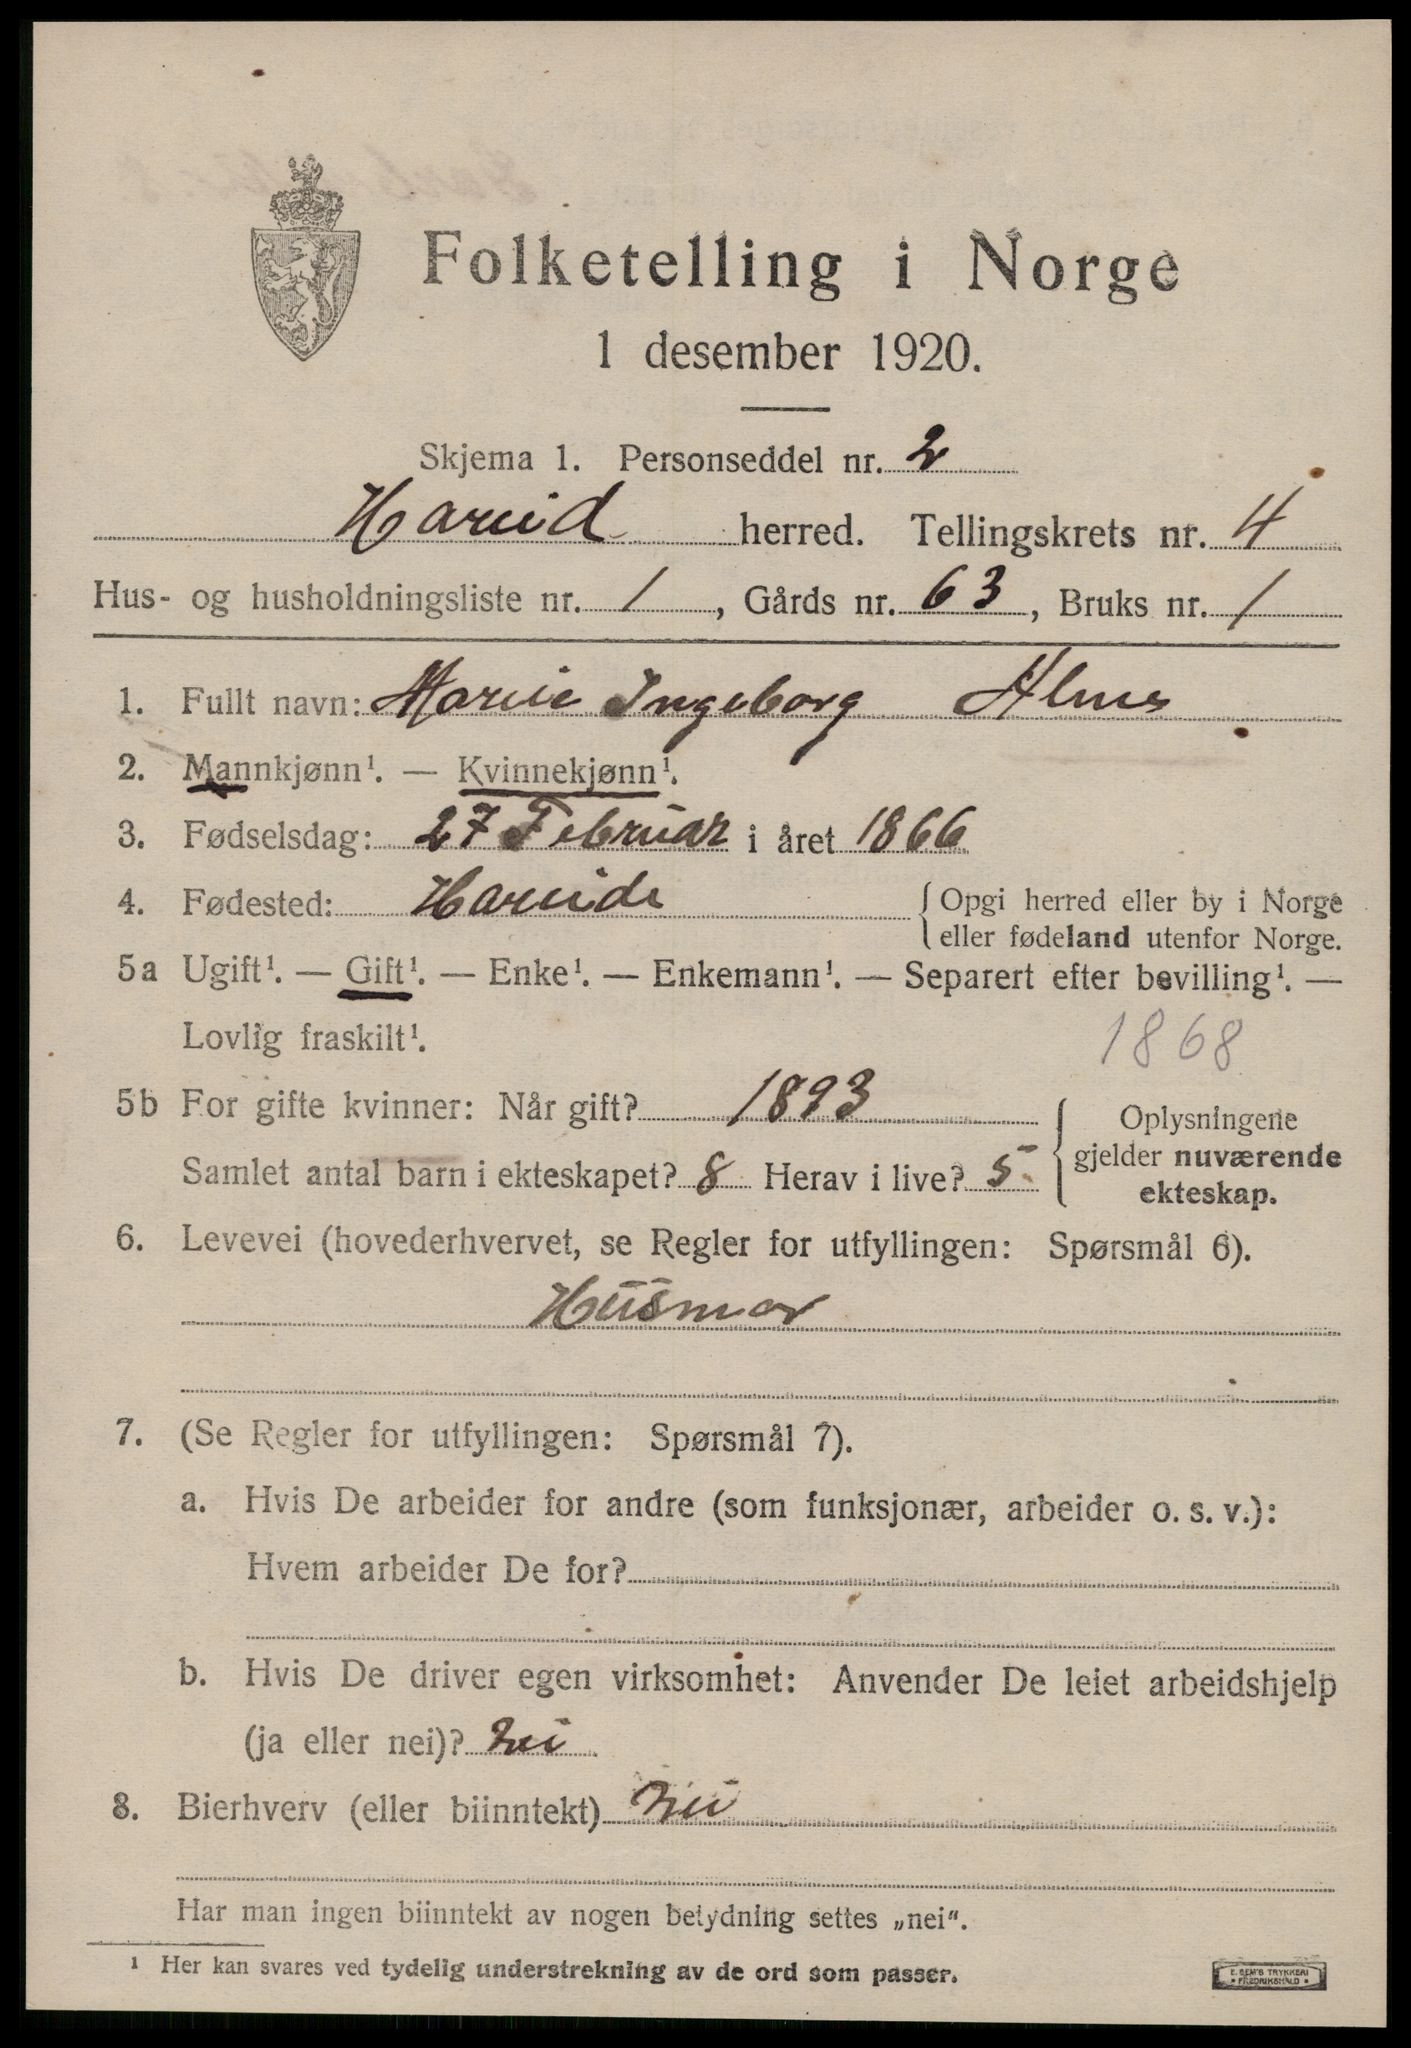 Folketelling i Norge
1 desember 1920.
Skjema 1. Personseddel nr. 2
Hareid herred. Tellingskrets nr. 4
Hus- og husholdningsliste nr. 1, Gårds nr. 63, Bruks nr. 1
1. Fullt navn: Marie Ingeborg Alme
2. Mannkjønn¹. — Kvinnekjønn¹.
3. Fødselsdag: 27 Februar i året 1866
4. Fødested: Hareide { Opgi herred eller by i Norge
eller fødeland utenfor Norge.
5a Ugift¹. — Gift¹. — Enke¹. — Enkemann¹. — Separert efter bevilling¹. —
Lovlig fraskilt¹. 1868
5b For gifte kvinner: Når gift? 1893
Samlet antal barn i ekteskapet? 8 Herav i live? 5
{ Oplysningene
gjelder nuværende
ekteskap.
6. Levevei (hovederhvervet, se Regler for utfyllingen: Spørsmål 6).
Husmor
7. (Se Regler for utfyllingen: Spørsmål 7).
a. Hvis De arbeider for andre (som funksjonær, arbeider o. s. v.):
Hvem arbeider De for?
b. Hvis De driver egen virksomhet: Anvender De leiet arbeidshjelp
(ja eller nei)? nei
8. Bierhverv (eller biinntekt) nei
Har man ingen biinntekt av nogen betydning settes „nei“.
¹ Her kan svares ved tydelig understrekning av de ord som passer.
E. SEM'S TRYKKERI
• FREDRIKSHALD •